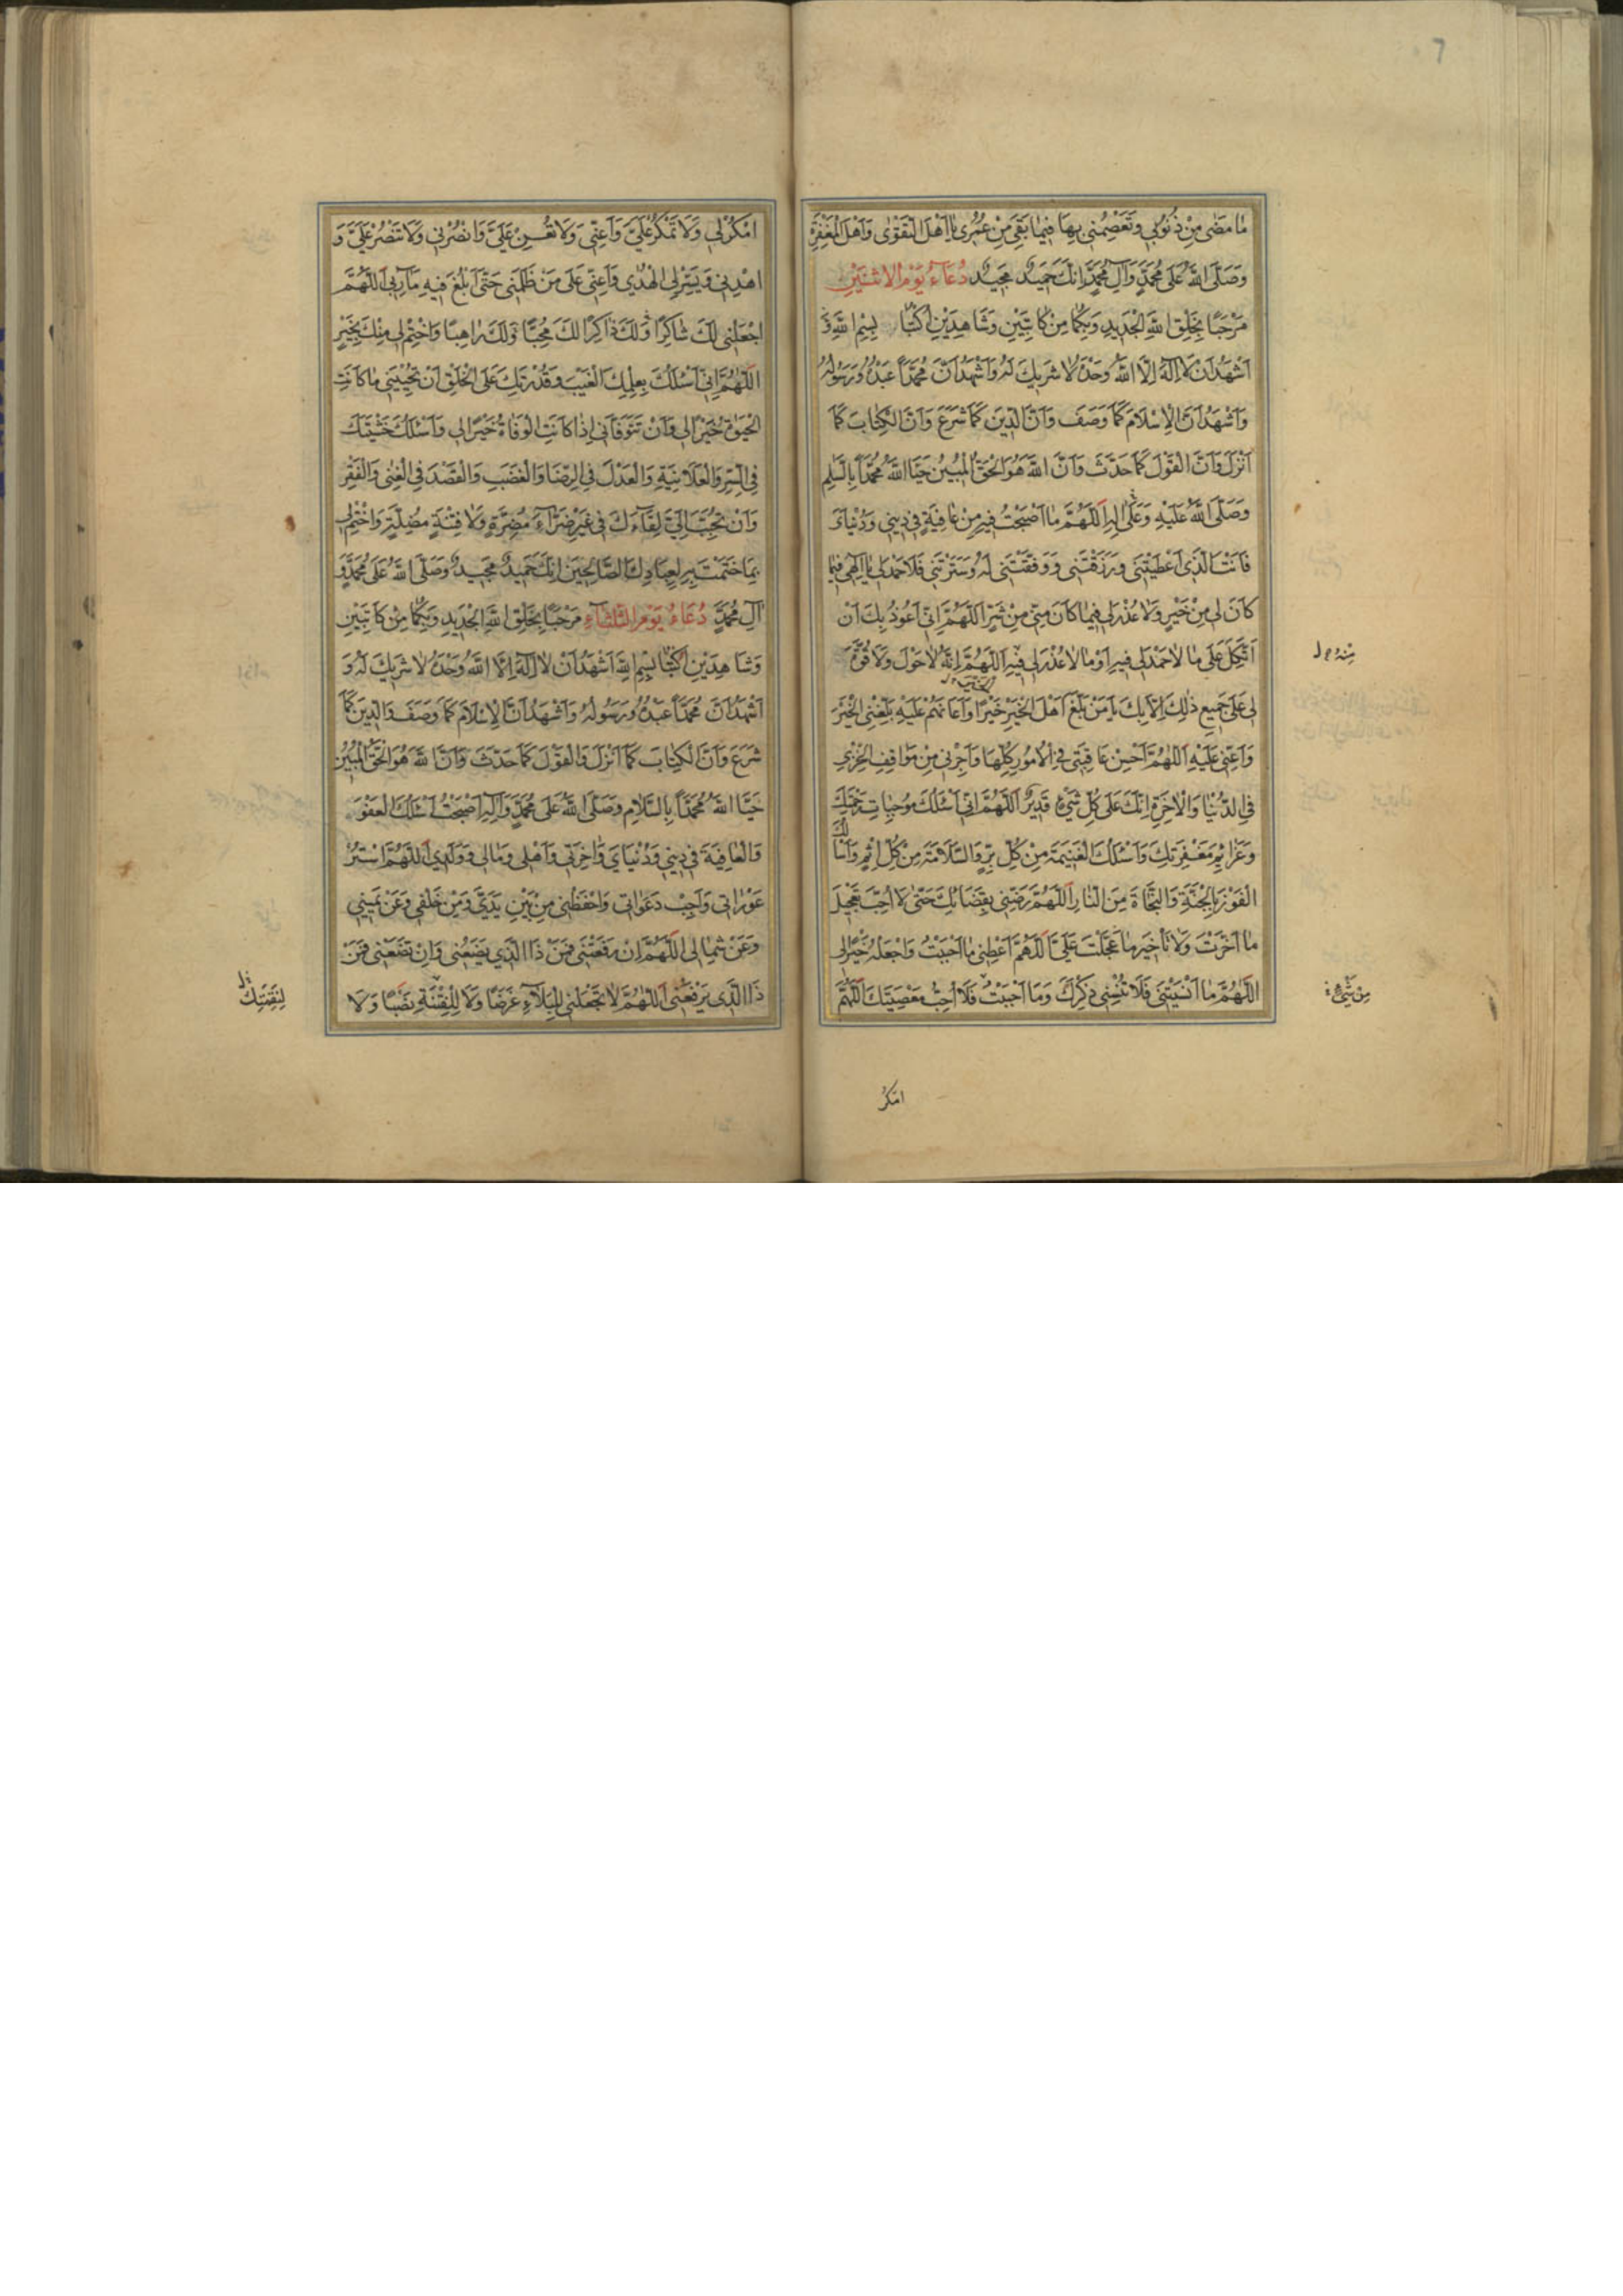 مٰا مَضٰى مِنْ ذُنُوبٖي وَتَعْصِمُنٖي بِهٰا فٖيمٰا بَقِيَ مِنْ عُمُرٖي يٰا اَهْلَ التَّقْوٰى وَاَهْلَ الْمَغْفِرَةِ
وَصَلَّى اللّٰهُ عَلٰى مُحَمَّدٍ وَآلِ مُحَمَّدٍ اِنَّكَ حَمٖيدٌ مَجٖيدٌ دُعَاءُ يَوْمِ الاثْنَيْنِ
مَرْحَبًا بِخَلْقِ اللّٰهِ الْجَدٖيدِ وَبِكُمٰا مِنْ كٰاتِبَيْنِ وَشٰاهِدَيْنِ اُكْتُبٰا بِسْمِ اللّٰهِ وَ
اَشْهَدُ اَنْ لٰا اِلٰهَ اِلَّا اللّٰهُ وَحْدَهُ لٰا شَرٖيكَ لَهُ وَاَشْهَدُ اَنَّ مُحَمَّدًا عَبْدُهُ وَرَسُولُهُ
وَاَشْهَدُ اَنَّ الْاِسْلٰامَ كَمٰا وَصَفَ وَاَنَّ الدّٖينَ كَمٰا شَرَعَ وَاَنَّ الْكِتٰابَ كَمٰا
اَنْزَلَ وَاَنَّ الْقَوْلَ كَمٰا حَدَّثَ وَاَنَّ اللّٰهَ هُوَ الْحَقُّ الْمُبٖينُ حَيَّا اللّٰهُ مُحَمَّدًا بِالسَّلٰمِ
وَصَلَّى اللّٰهُ عَلَيْهِ وَعَلٰى اٰلِهِ اَللّٰهُمَّ مٰا اَصْبَحْتُ فٖيهِ مِنْ عٰافِيَةٍ فٖي دٖينٖي وَدُنْيٰايَ
فَاَنْتَ الَّذٖي اَعْطَيْتَنٖي وَرَزَقْتَنٖي وَوَفَّقْتَنٖي لَهُ وَسَتَرْتَنٖي فَلٰا حَمْدَ لٖي يٰا اِلٰهٖي فٖيمٰا
كٰانَ لٖي مِنْ خَيْرٍ وَلٰا عُذْرَ لٖي فٖيمٰا كٰانَ مِنّٖي مِنْ شَرٍّ اَللّٰهُمَّ اِنّٖي اَعُوذُ بِكَ اَنْ
اَتَّكِلَ عَلٰى مٰا لٰا حَمْدَ لٖي فٖيهِ اَوْ مٰا لٰا عُذْرَ لٖي فٖيهِ اَللّٰهُمَّ اِنَّهُ لٰا حَوْلَ وَلٰا قُوَّةَ
مِنْهُ
لٖي عَلٰى جَمٖيعِ ذٰلِكَ اِلّٰا بِكَ يٰا مَنْ بَلَّغَ اَهْلَ الْخَيْرِ خَيْرًا وَاَعٰانَهُمْ عَلَيْهِ بَلِّغْنٖي الْخَيْرَ
وَاَعِنّٖي عَلَيْهِ اَللّٰهُمَّ اَحْسِنْ عٰاقِبَتٖي فٖي الْاُمُورِ كُلِّهٰا وَاَجِرْنٖي مِنْ مَوٰاقِفِ الْخِزْيِ
فِي الدُّنْيٰا وَالْاٰخِرَةِ اِنَّكَ عَلٰى كُلِّ شَيْءٍ قَدٖيرٌ اَللّٰهُمَّ اِنّٖي اَسْئَلُكَ مُوجِبٰاتِ رَحْمَتِكَ
وَعَزٰائِمَ مَغْفِرَتِكَ وَاَسْئَلُكَ الْغَنٖيمَةَ مِنْ كُلِّ بِرٍّ وَالسَّلٰامَةَ مِنْ كُلِّ اِثْمٍ وَاَسْاَلُكَ
الْفَوْزَ بِالْجَنَّةِ وَالنَّجٰاةَ مِنَ النّٰارِ اَللّٰهُمَّ رَضِّنٖي بِقَضٰائِكَ حَتّٰى لٰا اُحِبَّ تَعْجٖيلَ
مٰا اَخَّرْتَ وَلٰا تَأْخٖيرَ مٰا عَجَّلْتَ عَلَيَّ اَللّٰهُمَّ اَعْطِنٖي مٰا اَحْبَبْتُ وَاجْعَلْهُ خَيْرًا لٖي
اَللّٰهُمَّ مٰا اَنْسَيْتَنٖي فَلٰا تُنْسِنٖي ذِكْرَكَ وَمٰا اَحْبَبْتُ فَلٰا اُحِبُّ مَعْصِيَتَكَ اَللّٰهُمَّ
مِنْ شَيْءٍ
امْكُرْ
امْكُرْ لٖي وَلٰا تَمْكُرْ عَلَيَّ وَاَعِنّٖي وَلٰا تُعِنْ عَلَيَّ وَانْصُرْنٖي وَلٰا تَنْصُرْ عَلَيَّ وَ
اهْدِنٖي وَيَسِّرْ لِيَ الْهُدٰى وَاَعِنّٖي عَلٰى مَنْ ظَلَمَنٖي حَتّٰى اَبْلُغَ فٖيهِ مَآرِبٖي اَللّٰهُمَّ
اجْعَلْنٖي لَكَ شٰاكِرًا وَلَكَ ذٰاكِرًا لَكَ مُحِبًّا وَلَكَ رٰاهِبًا وَاخْتِمْ لٖي مِنْكَ بِخَيْرٍ
اَللّٰهُمَّ اِنّٖي اَسْئَلُكَ بِعِلْمِكَ الْغَيْبَ وَقُدْرَتِكَ عَلَى الْخَلْقِ اَنْ تُحْيِيَنٖي مٰا كٰانَتِ
الْحَيٰوةُ خَيْرًا لٖي وَاَنْ تَتَوَفّٰانٖي اِذٰا كٰانَتِ الْوَفٰاةُ خَيْرًا لٖي وَاَسْئَلُكَ خَشْيَتَكَ
فِي السِّرِّ وَالْعَلٰانِيَةِ وَالْعَدْلَ فِي الرِّضٰا وَالْغَضَبِ وَالْقَصْدَ فِي الْغِنٰى وَالْفَقْرِ
وَاَنْ تُحَبِّبَ اِلَيَّ لِقٰاءَكَ فٖي غَيْرِ ضَرّٰاءَ مُضِرَّةٍ وَلٰا فِتْنَةٍ مُضِلَّةٍ وَاخْتِمْ لٖي
بِمٰا خَتَمْتَ بِهِ لِعِبٰادِكَ الصّٰالِحٖينَ اِنَّكَ حَمٖيدٌ مَجٖيدٌ وَصَلَّى اللّٰهُ عَلٰى مُحَمَّدٍ وَ
آلِ مُحَمَّدٍ دُعَاءُ يَوْمِ الثَّلٰثَاءِ مَرْحَبًا بِخَلْقِ اللّٰهِ الْجَدٖيدِ وَبِكُمٰا مِنْ كٰاتِبَيْنِ
وَشٰاهِدَيْنِ اُكْتُبٰا بِسْمِ اللّٰهِ اَشْهَدُ اَنْ لٰا اِلٰهَ اِلَّا اللّٰهُ وَحْدَهُ لٰا شَرٖيكَ لَهُ وَ
اَشْهَدُ اَنَّ مُحَمَّدًا عَبْدُهُ وَرَسُولُهُ وَاَشْهَدُ اَنَّ الْاِسْلٰامَ كَمٰا وَصَفَ وَالدّٖينَ كَمٰا
شَرَعَ وَاَنَّ الْكِتٰابَ كَمٰا اَنْزَلَ وَالْقَوْلَ كَمٰا حَدَّثَ وَاَنَّ اللّٰهَ هُوَ الْحَقُّ الْمُبٖينُ
حَيَّا اللّٰهُ مُحَمَّدًا بِالسَّلٰامِ وَصَلَّى اللّٰهُ عَلٰى مُحَمَّدٍ وَآلِهِ اَصْبَحْتُ اَسْئَلُكَ الْعَفْوَ
وَالْعٰافِيَةَ فٖي دٖينٖي وَدُنْيٰايَ وَاٰخِرَتٖي وَاَهْلٖي وَمٰالٖي وَوَلَدٖي اَللّٰهُمَّ اسْتُرْ
عَوْرٰاتٖي وَاَجِبْ دَعَوٰاتٖي وَاحْفَظْنٖي مِنْ بَيْنِ يَدَيَّ وَمِنْ خَلْفٖي وَعَنْ يَمٖينٖي
وَعَنْ شِمٰالٖي اَللّٰهُمَّ اِنْ رَفَعْتَنٖي فَمَنْ ذَا الَّذٖي يَضَعُنٖي وَاِنْ تَضَعْنٖي فَمَنْ
ذَا الَّذٖي يَرْفَعُنٖي اَللّٰهُمَّ لٰا تَجْعَلْنٖي لِلْبَلٰاءِ غَرَضًا وَلٰا لِلْفِتْنَةِ نَصَبًا وَلٰا
لِنَقِمَتِكَ